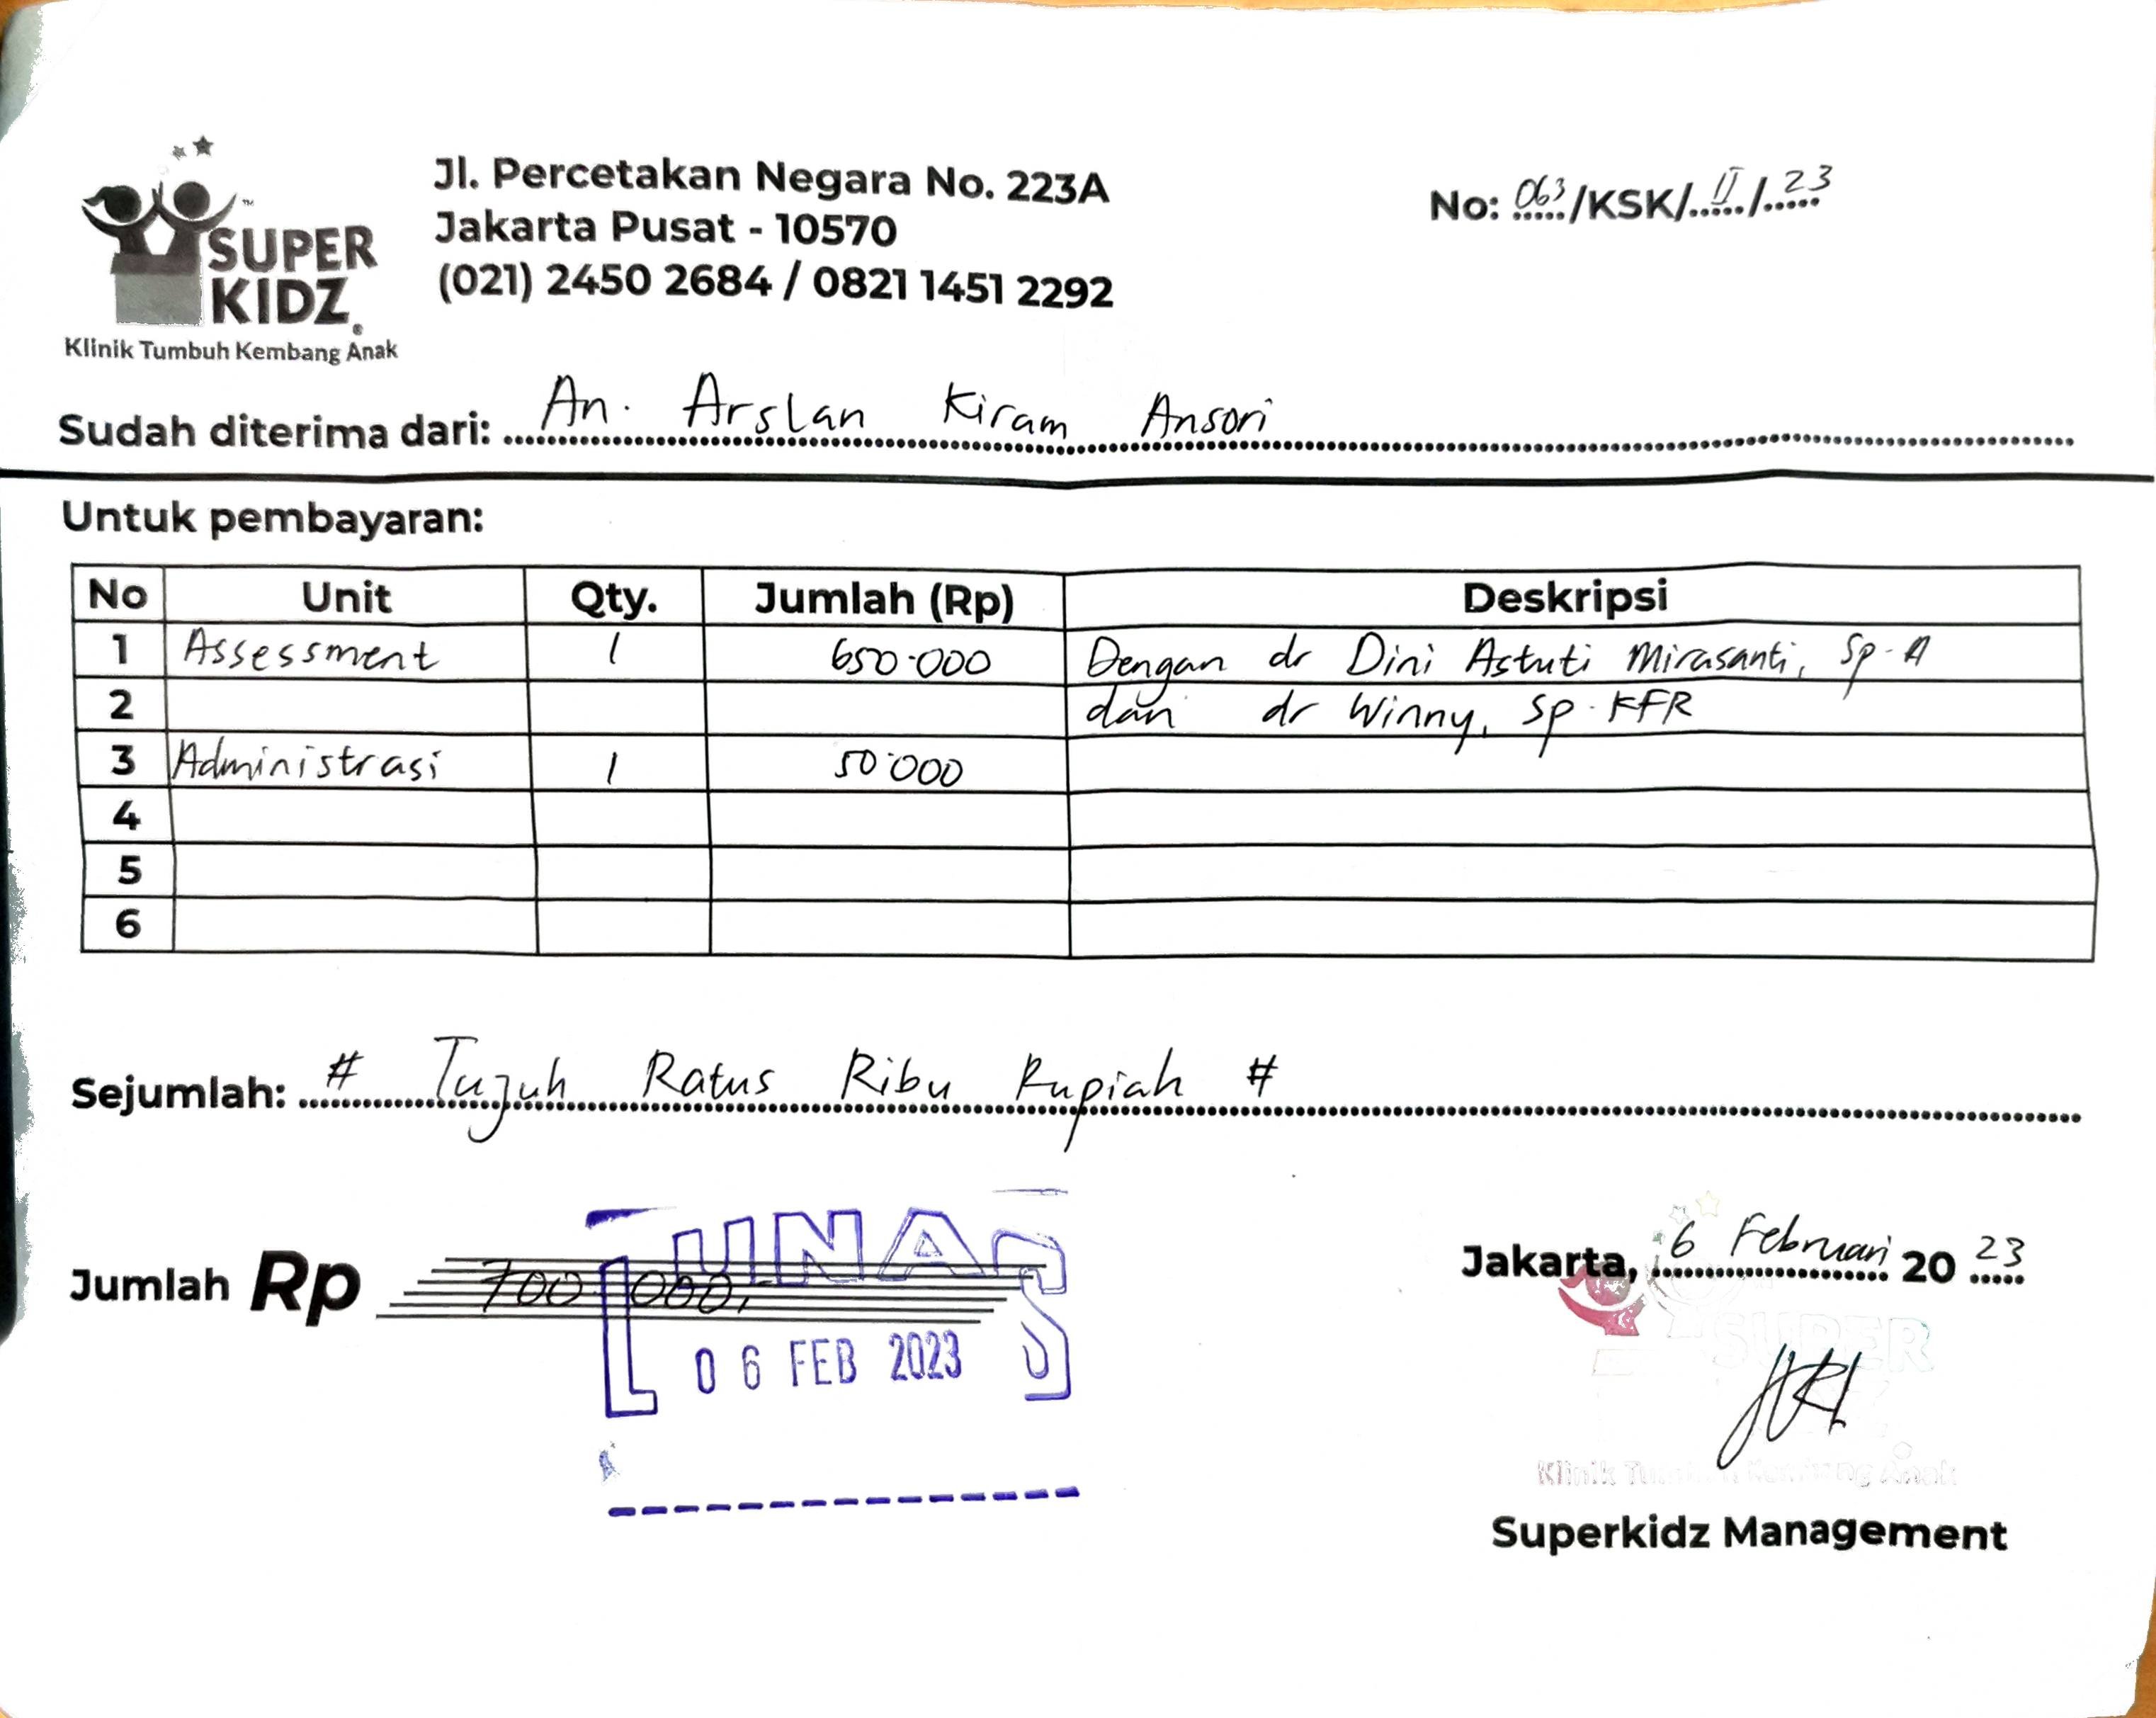 SUPER KIDZ
Klinik Tumbuh Kembang Anak
Jl. Percetakan Negara No. 223A
Jakarta Pusat - 10570
(021) 2450 2684 / 0821 1451 2292
No: 063/KSK/II/23
Sudah diterima dari: An. Arslan Kiram Ansori
Untuk pembayaran:
No Unit Qty. Jumlah (Rp) Deskripsi
1 Assessment 1 650.000 Dengan dr Dini Astuti Mirasanti, Sp.A
2 dan dr Winny, Sp.KFR
3 Administrasi 1 50.000
4
5
6
Sejumlah: # Tujuh Ratus Ribu Rupiah #
Jumlah Rp 700.000,-
LUNAS
06 FEB 2023
Jakarta, 6 Februari 2023
SUPER
Klinik Tumbuh Kembang Anak
Superkidz Management